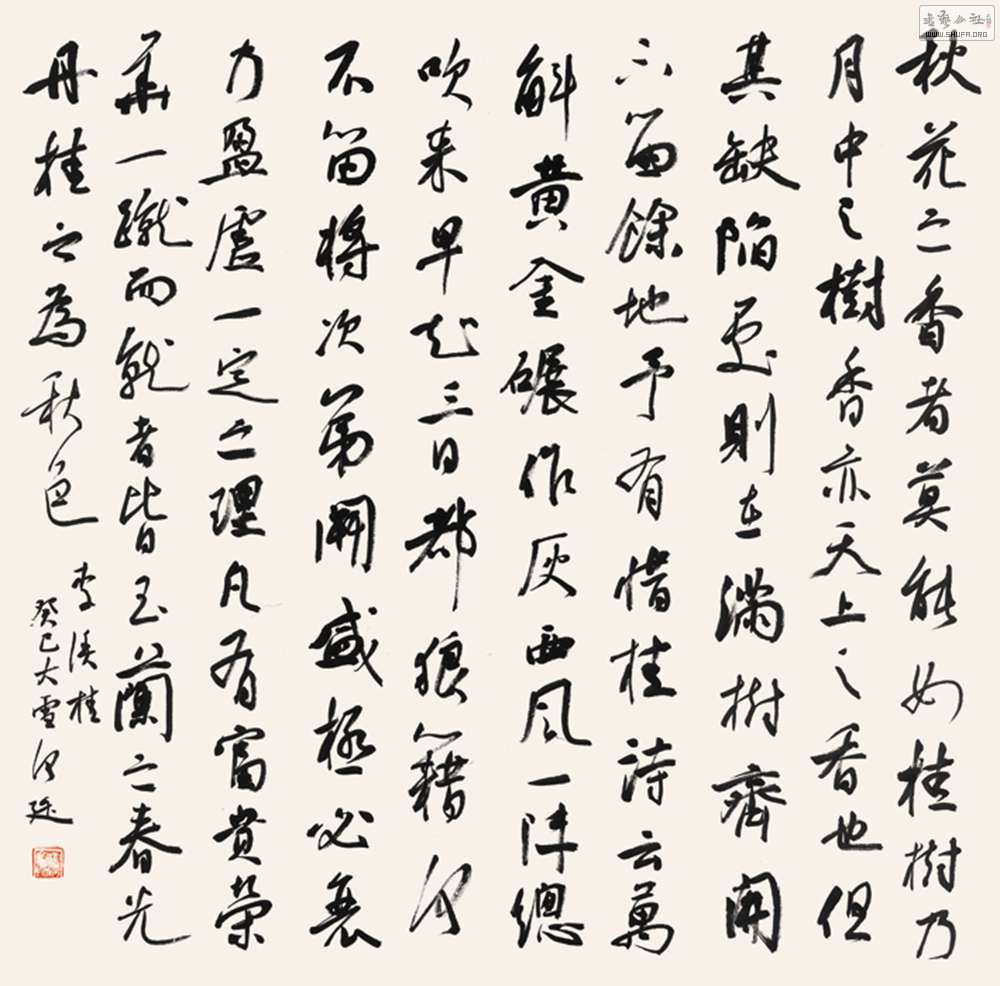 秋花之香者莫能如桂樹乃
月中之樹香亦天上之香也但
其缺陷處則在滿樹齊開
不留餘地予有惜桂詩云萬
斛黄金碾作灰西風一陣總
吹来早知三日都狼籍何
不留將次第開盛極必衰
乃盈虛一定之理凡有富貴榮
華一蹴而就者皆玉蘭之春光
丹桂之為秋色
李漁桂
癸巳大雪
書藝公社
WWW.SHUFA.ORG